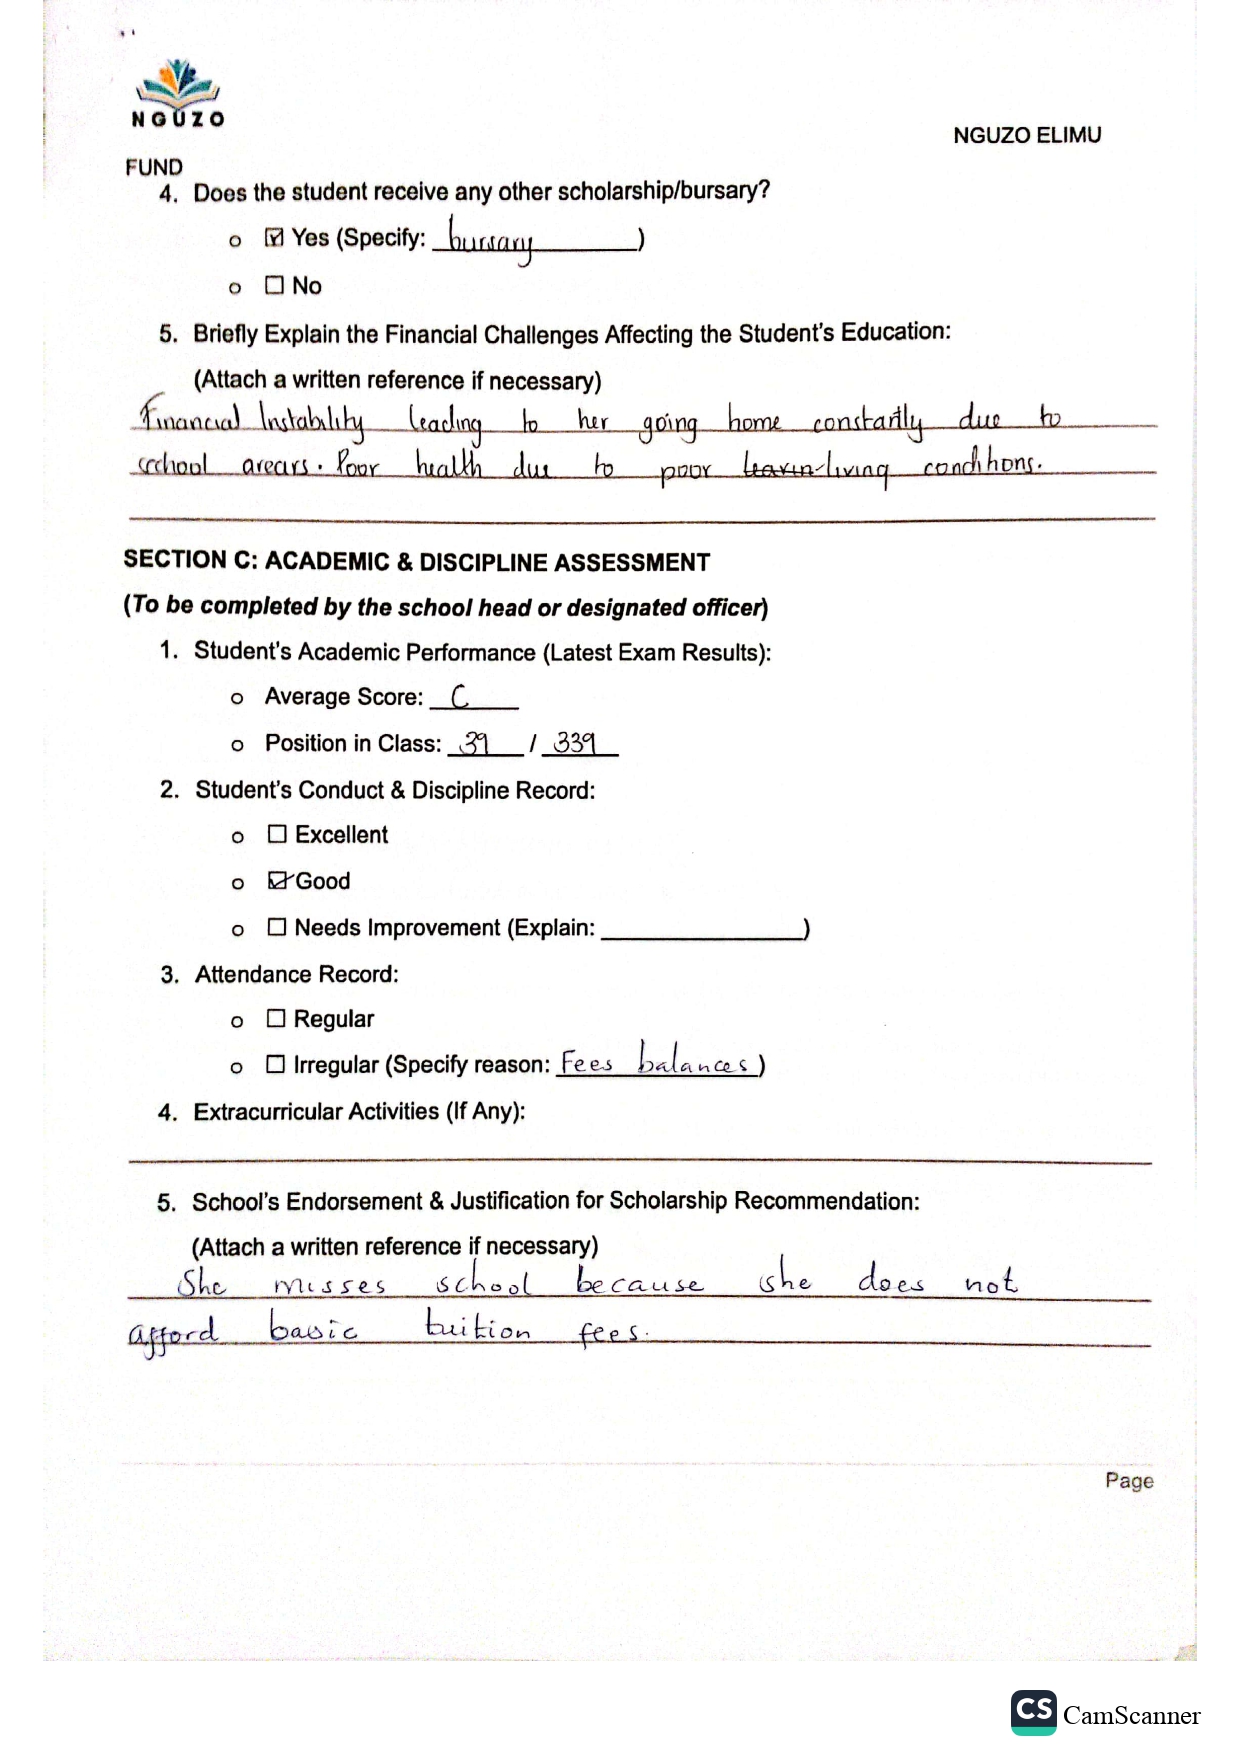 NGUZO
NGUZO ELIMU
FUND
4. Does the student receive any other scholarship/bursary?
o ☑ Yes (Specify: bursary)
o ☐ No
5. Briefly Explain the Financial Challenges Affecting the Student's Education:
(Attach a written reference if necessary)
Financial Instability leading to her going home constantly due to
school arears. Poor health due to poor ~~leavin~~ living conditions.
SECTION C: ACADEMIC & DISCIPLINE ASSESSMENT
(To be completed by the school head or designated officer)
1. Student's Academic Performance (Latest Exam Results):
o Average Score: C
o Position in Class: 39 / 339
2. Student's Conduct & Discipline Record:
o ☐ Excellent
o ☑ Good
o ☐ Needs Improvement (Explain: ____________)
3. Attendance Record:
o ☐ Regular
o ☐ Irregular (Specify reason: Fees balances)
4. Extracurricular Activities (If Any):
5. School's Endorsement & Justification for Scholarship Recommendation:
(Attach a written reference if necessary)
She misses school because she does not
afford basic tuition fees.
Page
CS CamScanner